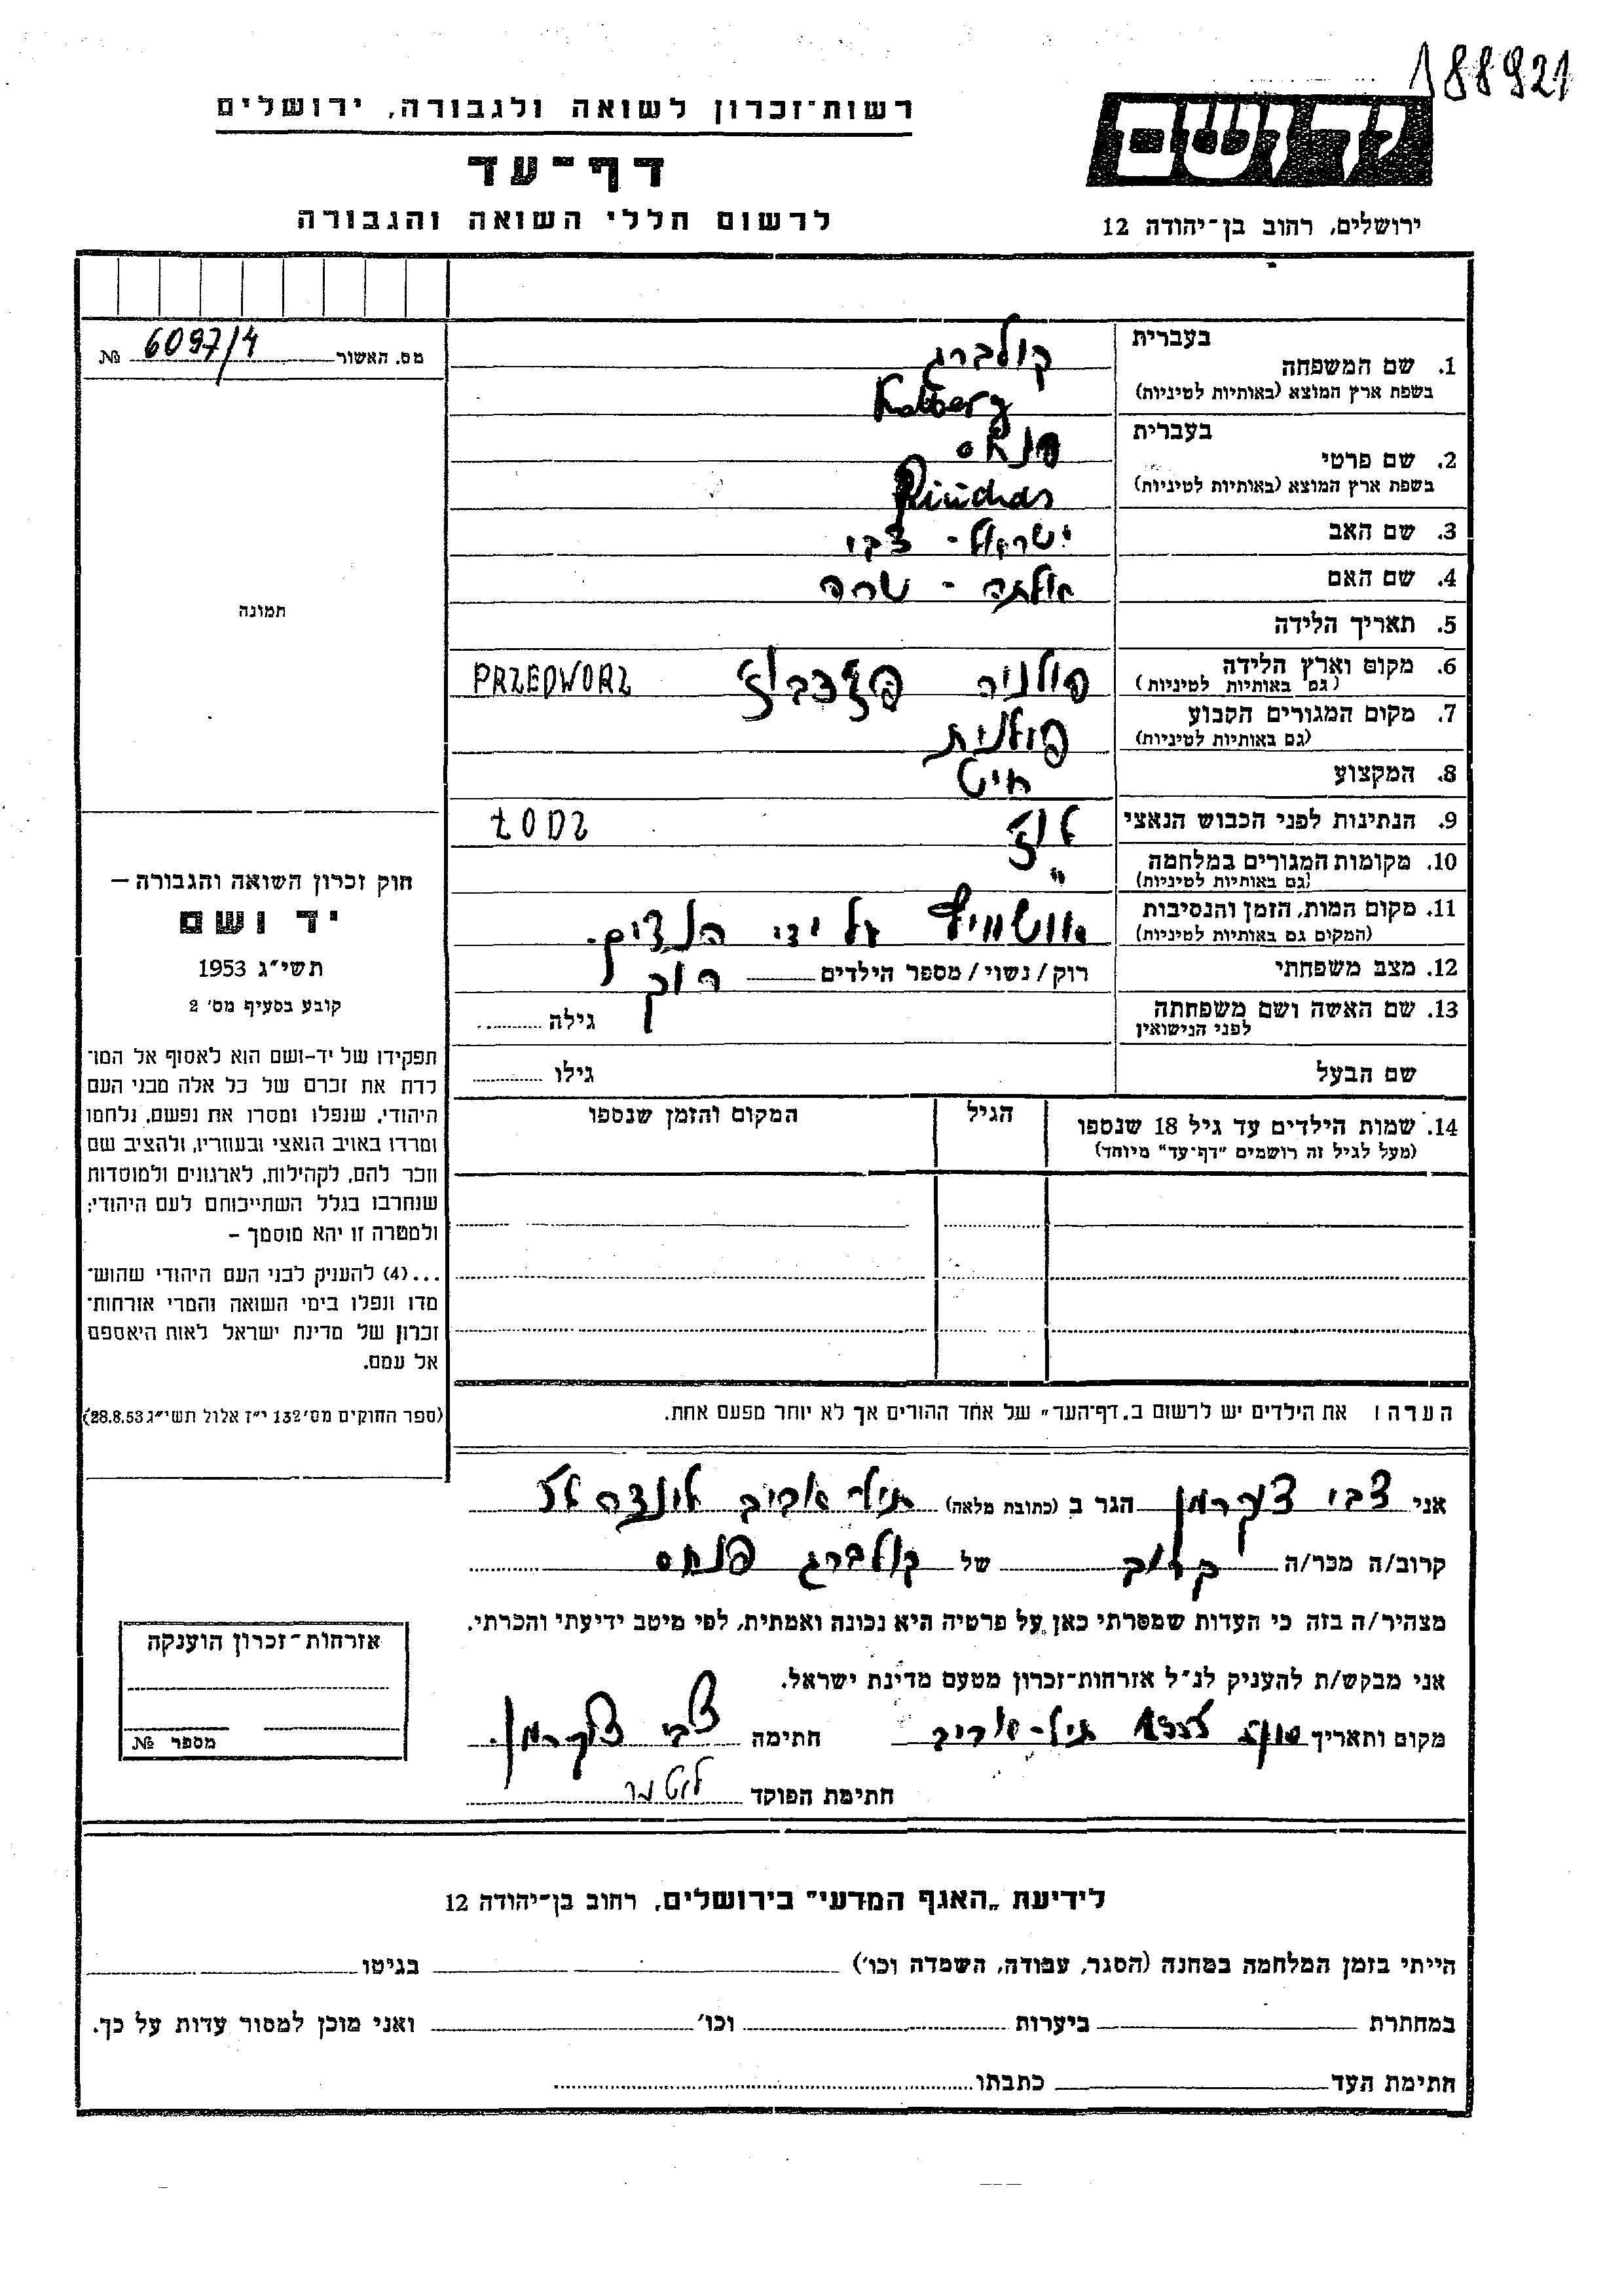 188921
רשות־זכרון לשואה ולגבורה, ירושלים
יד ושם
דף־עד
לרשום חללי השואה והגבורה
ירושלים, רחוב בן־יהודה 12
מס. האשור 6097/4 №
תמונה
חוק זכרון השואה והגבורה —
יד ושם
תשי״ג 1953
קובע בסעיף מס׳ 2
תפקידו של יד-ושם הוא לאסוף אל המו־
לדת את זכרם של כל אלה מבני העם
היהודי, שנפלו ומסרו את נפשם, נלחמו
ומרדו באויב הנאצי ובעוזריו, ולהציב שם
וזכר להם, לקהילות, לארגונים ולמוסדות
שנחרבו בגלל השתייכותם לעם היהודי;
ולמטרה זו יהא מוסמך –
...(4) להעניק לבני העם היהודי שהוש־
מדו ונפלו בימי השואה והמרי אזרחות־
זכרון של מדינת ישראל לאות היאספם
אל עמם.
(ספר החוקים מס׳ 132 י״ז אלול תשי״ג 28.8.53)
בעברית קולברג
1. שם המשפחה
בשפת ארץ המוצא (באותיות לטיניות) Kolberg
בעברית פנחס
2. שם פרטי
בשפת ארץ המוצא (באותיות לטיניות) Pinchas
3. שם האב ישראל - צבי
4. שם האם אלתה - שרה
5. תאריך הלידה
6. מקום וארץ הלידה פולניה PRZEDWORZ
(גם באותיות לטיניות)
7. מקום המגורים הקבוע פולנית
(גם באותיות לטיניות)
8. המקצוע חיט
9. הנתינות לפני הכבוש הנאצי לודז ŁODZ
10. מקומות המגורים במלחמה "
(גם באותיות לטיניות)
11. מקום המות, הזמן והנסיבות על ידי הנצים.
(המקום גם באותיות לטיניות)
12. מצב משפחתי רוק/נשוי/מספר הילדים רוק
13. שם האשה ושם משפחתה גילה
לפני הנישואין
שם הבעל גילו
14. שמות הילדים עד גיל 18 שנספו הגיל המקום והזמן שנספו
(מעל לגיל זה רושמים "דף־עד" מיוחד)
הערה: את הילדים יש לרשום ב„דף־העד" של אחד ההורים אך לא יותר מפעם אחת.
אני צבי צוקרמן הגר ב (כתובת מלאה) תיל אביב
קרוב/ה מכר/ה קרוב של קולברג פנחס
מצהיר/ה בזה כי העדות שמסרתי כאן על פרטיה היא נכונה ואמתית, לפי מיטב ידיעתי והכרתי.
אני מבקש/ת להעניק לנ״ל אזרחות־זכרון מטעם מדינת ישראל.
מקום ותאריך תיל-אביב חתימה צבי צוקרמן.
חתימת הפוקד
אזרחות־זכרון הוענקה
מספר №
לידיעת „האגף המדעי" בירושלים, רחוב בן־יהודה 12
הייתי בזמן המלחמה במחנה (הסגר, עבודה, השמדה וכו׳) בגיטו
במחתרת ביערות וכו׳ ואני מוכן למסור עדות על כך.
חתימת העד כתבתו